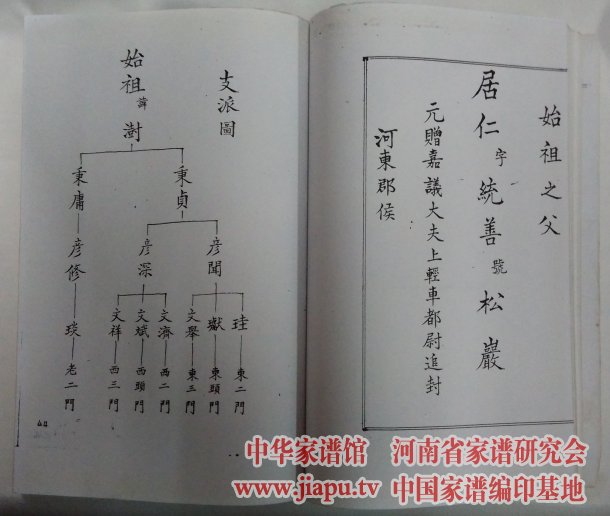 始祖之父
居仁 字 統善 號 松巖
元贈嘉議大夫上輕車都尉追封
河東郡侯
支派圖
始祖 諱 澍
秉貞 秉庸
彥聞 彥深 彥修
珪 嶽 文舉 文濟 文斌 文祥 琰
東二門 東頭門 東三門 西二門 西頭門 西三門 老二門
中华家谱馆 河南省家谱研究会
www.jiapu.tv 中国家谱编印基地